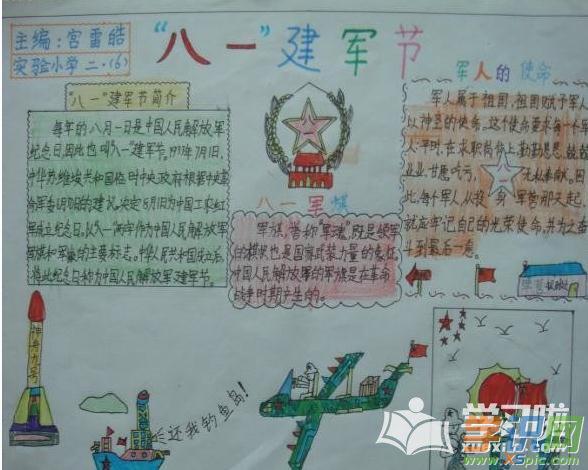 主编:宫雷皓
实验小学二·(6)
"八一"建军节
"八一"建军节简介
每年的八月一日是中国人民解放军
纪念日,因此也叫"八一"建军节。1933年7月1日,
中华苏维埃共和国临时中央政府根据中央革
命军委6月30日的建议,决定8月1日为中国工农红
军成立纪念日。从"八一"两字作为中国人民解放军
军旗和军徽的主要标志。中华人民共和国成立后,
将此纪念日称为中国人民解放军建军节。
八一军旗
军旗,誉称"军魂",既是领军
的模块也是国家武力量的象征
中国人民解放军的军旗是在革命
战争时期产生的。
军人的使命
军人属于祖国,祖国赋予军人
以神圣的使命。这个使命要求每个
人,平时,在求职岗位上勤勤恳恳,兢兢
业业,甘愿吃亏,无私奉献。因
此,每个军人从投身军营那天起,
就应牢记自己的光荣使命,并为之奋
斗到最后一息。
神舟九号
还我钓鱼岛!
学习啦
XUEXILA.COM
www.X5pic.com